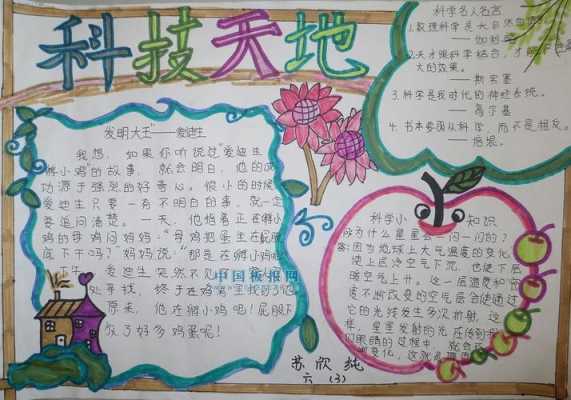 科技天地
发明大王——爱迪生
我想，如果你听说过"爱迪生
孵小鸡"的故事，就会明白，他的成
功源于强烈的好奇心。很小的时候
爱迪生只要一有不明白的事，就一定
要追问清楚。一天，他指着正在孵小
鸡的母鸡问妈妈："母鸡把蛋坐在屁股
底下干吗？"妈妈说："那是在孵小鸡
爱迪生突然不见
处寻找，终于在鸡窝里找到了他
原来，他在孵小鸡呢！屁股下
放了好多鸡蛋呢！
中国板报网
科学名人名言
1.数理科学是大自然
——伽利略
2.天才跟科学结合，才能
大的效果。
——斯宾塞
3.科学是我时代的神经系统。
——高尔基
4.书本要跟从科学，而不是相反。
——培根。
科学小知识
问为什么星星会一闪一闪的？
答：因为地球上大气温度的变化
使上层冷空气下沉，也使下层
暖空气上升。这一层温度和密
度不断改变的空气层会使通过
它的光线发生多次折射，这
样，星星发射的光在传到我
们眼睛的过程中，就会
变化，这就
苏欣纯
六（3）